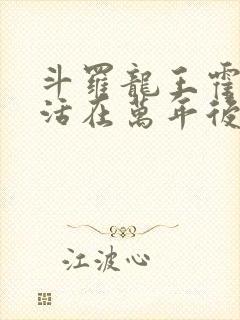 斗羅龍王霍
活在萬年後
江波心